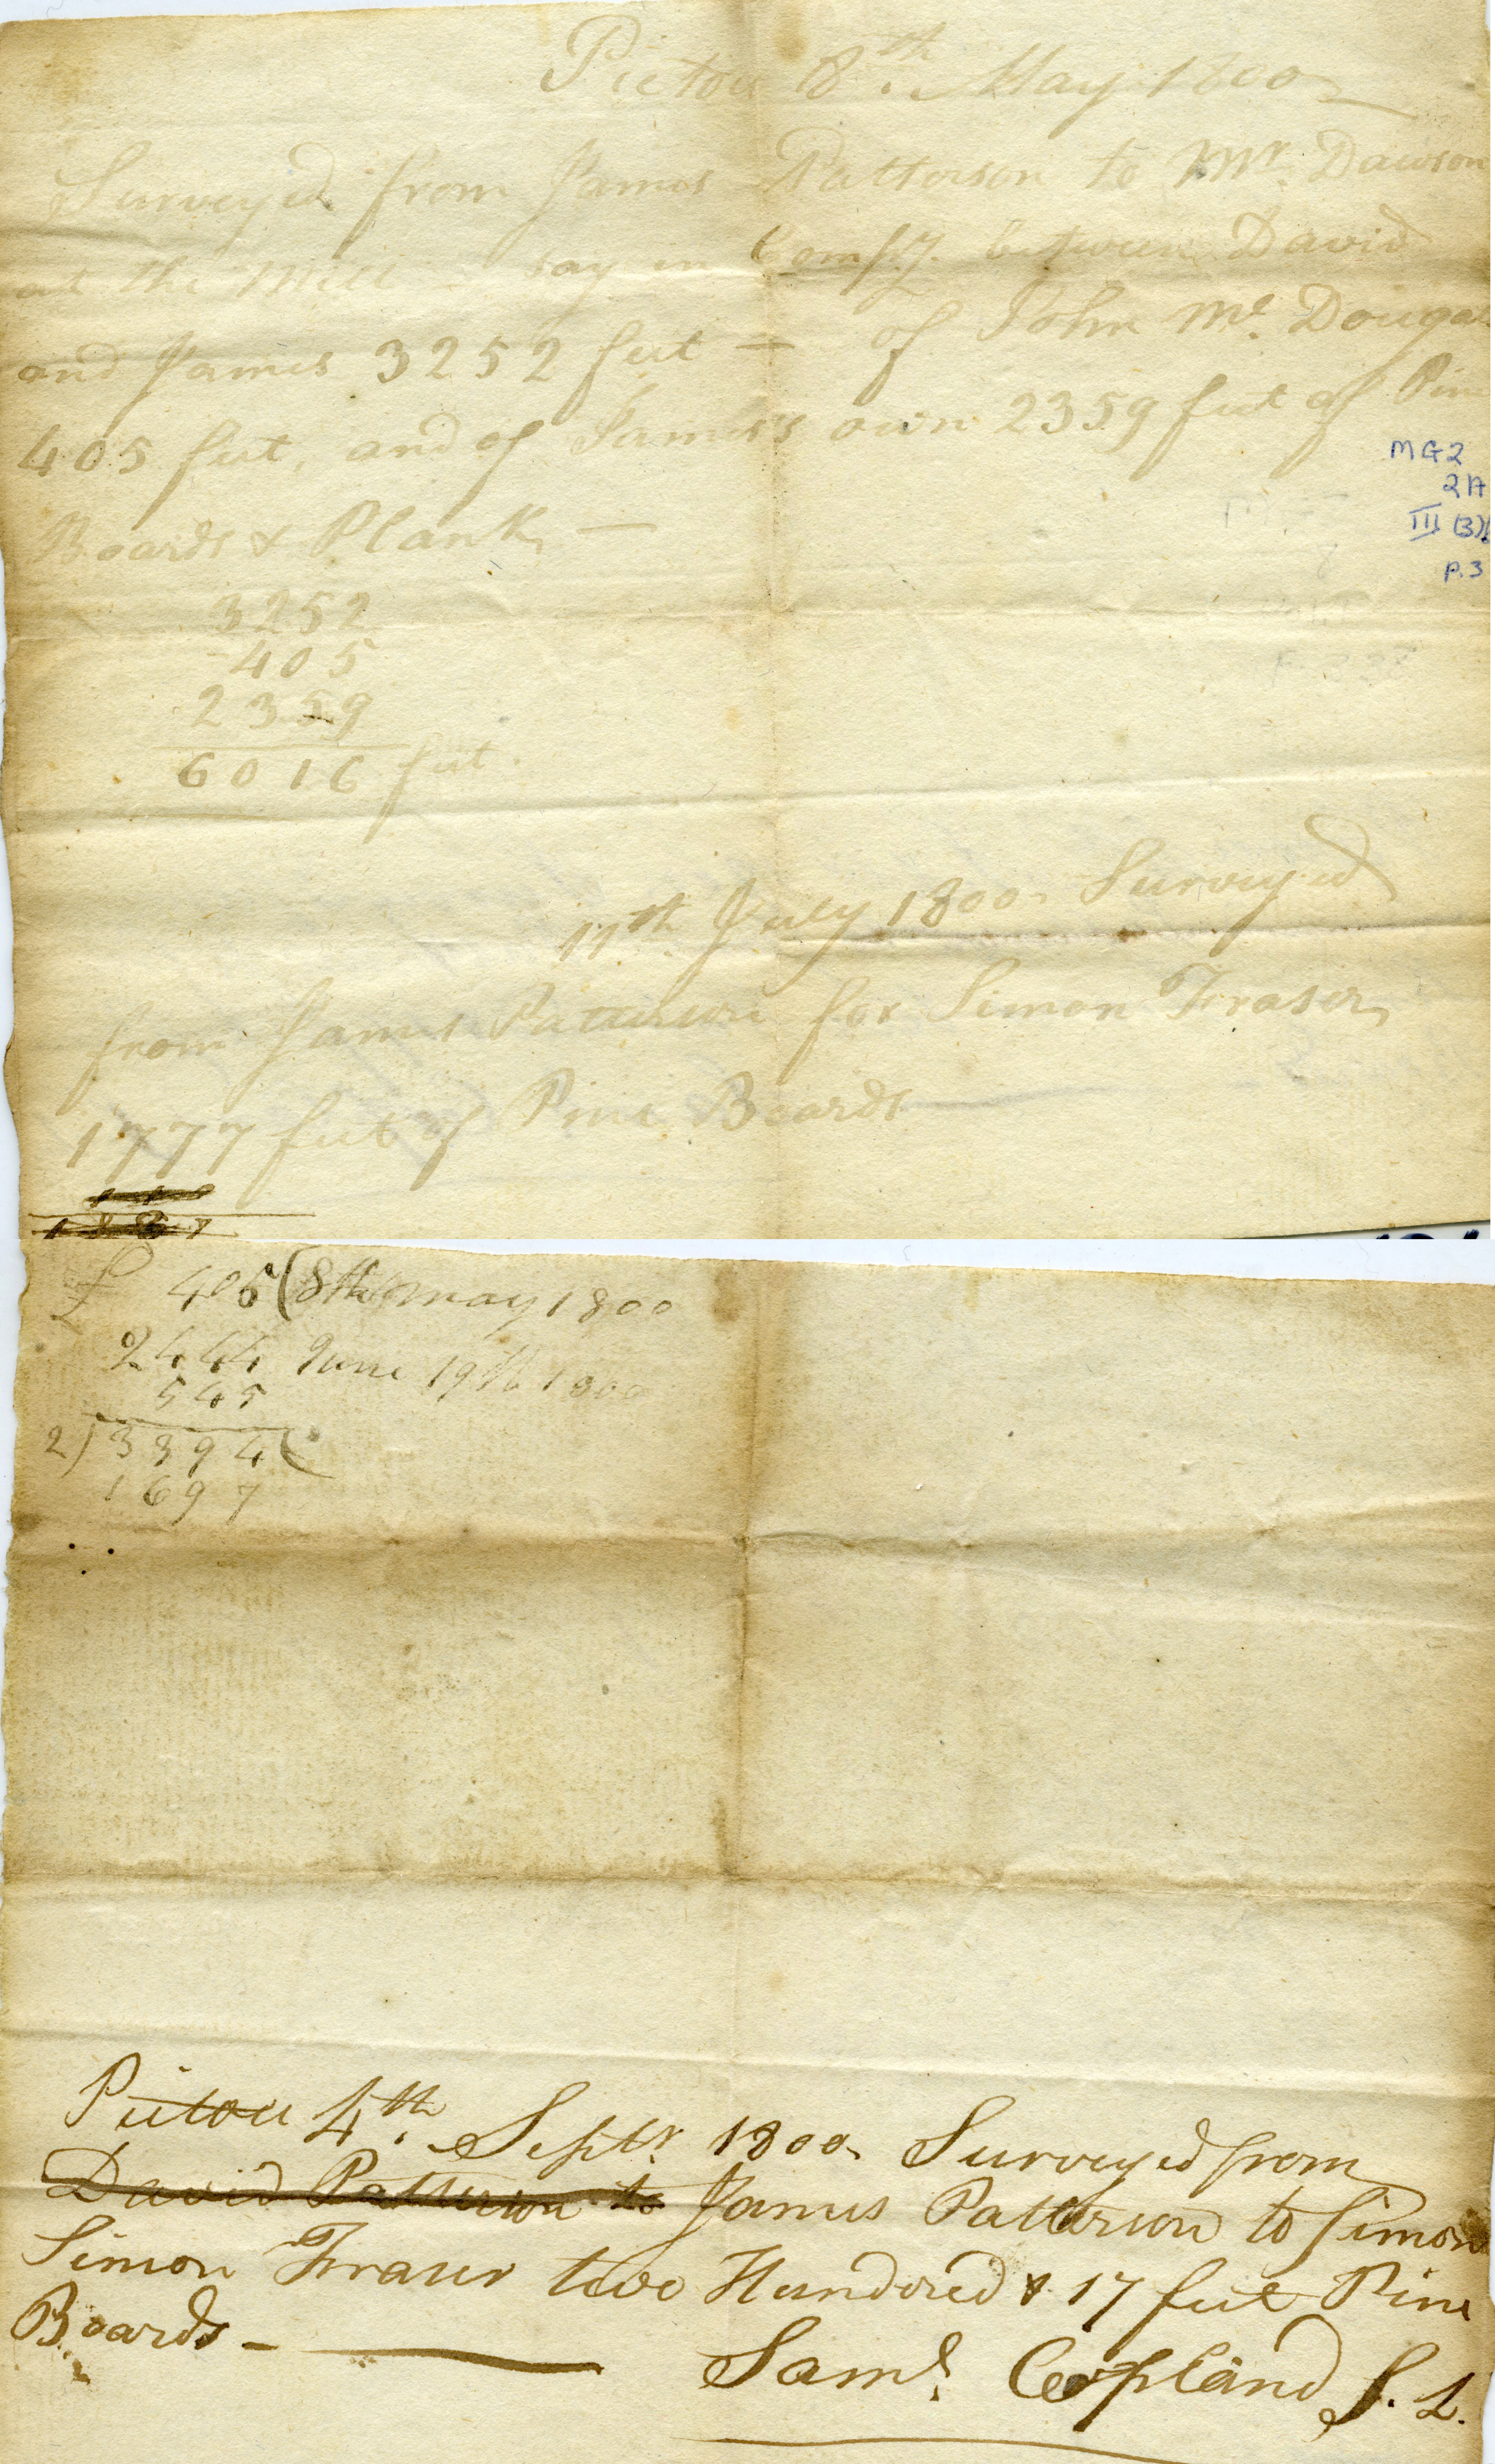 Pictou 8th May 1800
Surveyed from James Patterson to Mr. Dawson
at the Mill - say in Compy. between David
and James 3252 feet - of John Mc. Dougal
405 feet, and of James's own 2359 feet of Pine
Boards & Plank -
MG2
2A
III (3)
P.3
3252
405
2359
6016 feet.
17th July 1800 Surveyed
from James Patterson for Simon Fraser
1777 feet of Pine Boards
1887
405 (8th May 1800
2444 June 19th 1800
545
2) 3394 (
1697
Pictou 4th. Septr. 1800 Surveyed from
David Patterson to James Patterson to Simon
Simon Fraser two Hundered & 17 feet Pine
Boards -
Saml. Copland S. L.